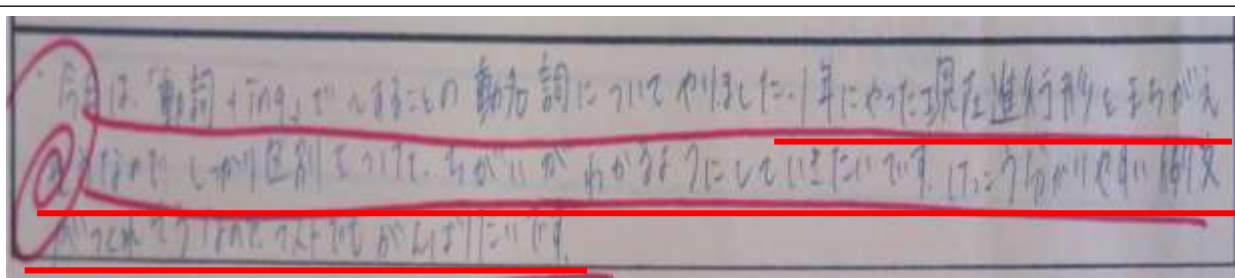 今日は、「動詞+ing」で〜することの動名詞についてやりました。1年にやった現在進行形とまちがえ
なので しっかり区別をつけて、ちがいがわかるようにしていきたいです。けっこう分かりやすい例文
がつくれそうなので、テストでもがんばりたいです。